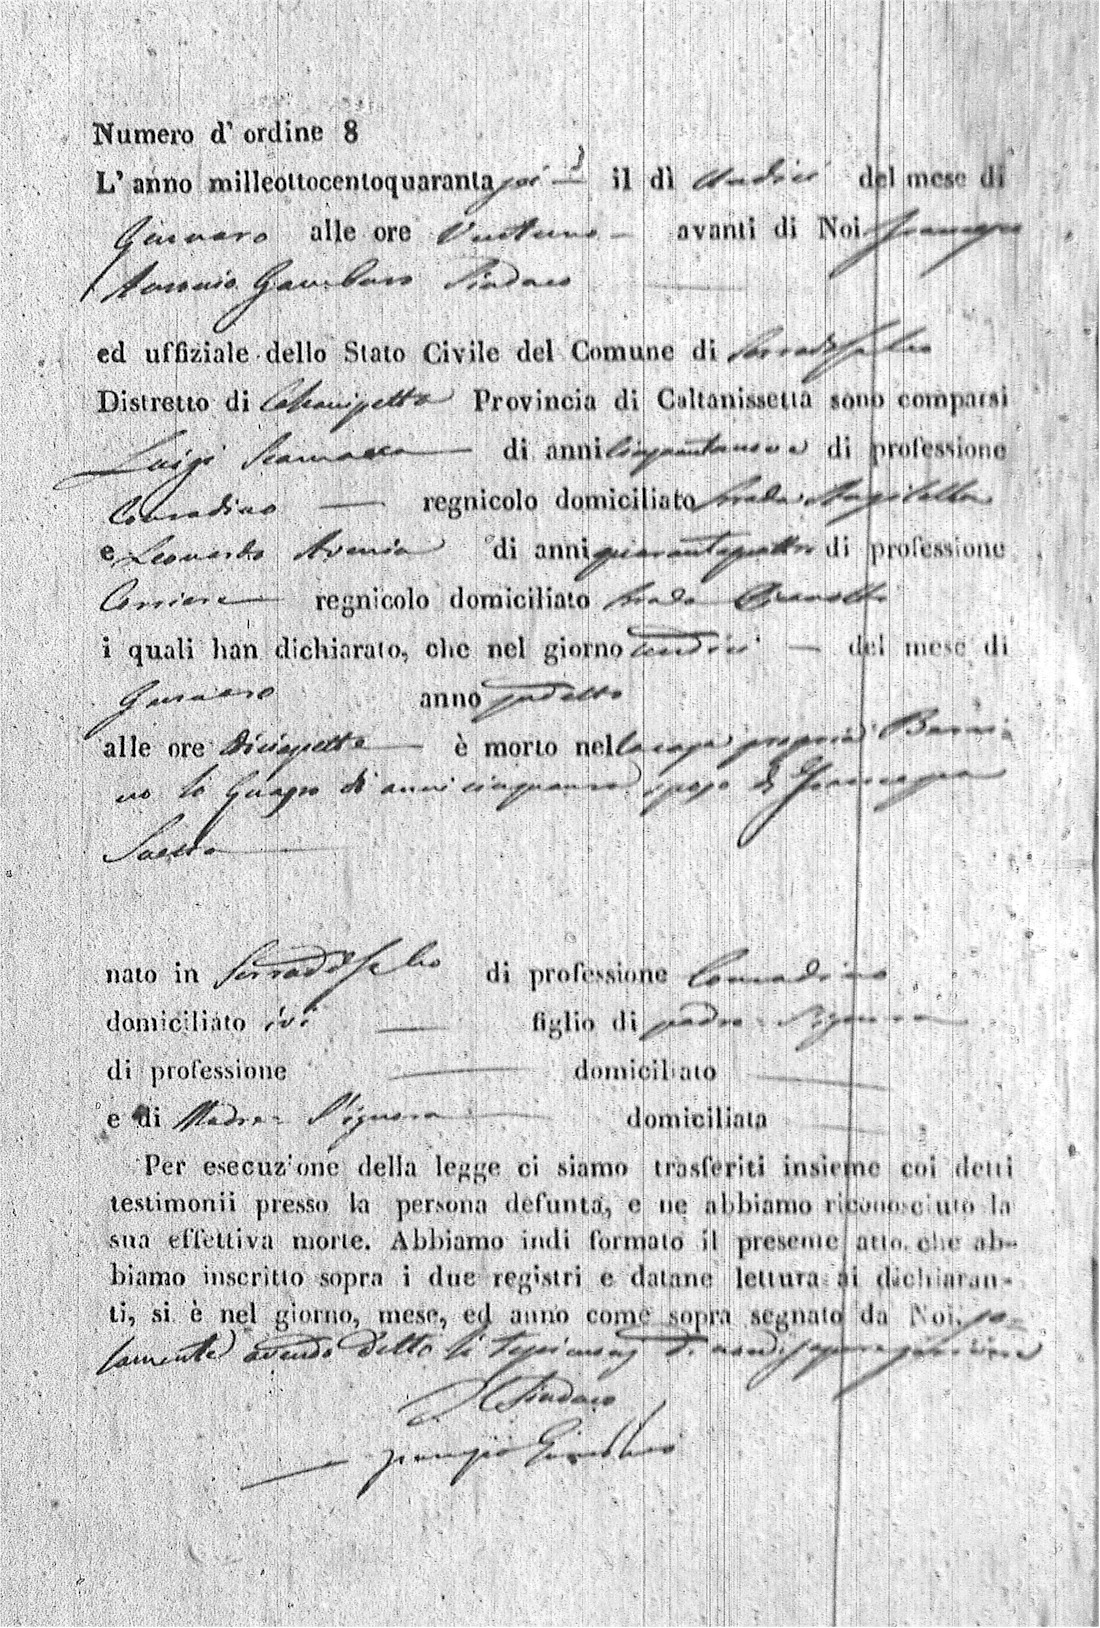 Numero d' ordine 8
L' anno milleottocentoquaranta sei il dì undici del mese di
Gennaro alle ore ventuno avanti di Noi
Antonio Sindaco
ed uffiziale dello Stato Civile del Comune di Serradifalco
Distretto di Caltanissetta Provincia di Caltanissetta sono comparsi
Luigi di anni cinquantanove di professione
Contadino regnicolo domiciliato strada
e Leonardo di anni quarantaquattro di professione
Corriere regnicolo domiciliato strada
i quali han dichiarato, che nel giorno undici del mese di
Gennaro anno suddetto
alle ore diciasette è morto nella casa propria
di anni sposo di
nato in Serradifalco di professione Contadino
domiciliato ivi figlio di padre s'ignora
di professione domiciliato
e di Madre s'ignora domiciliata
Per esecuzione della legge ci siamo trasferiti insieme coi detti
testimonii presso la persona defunta, e ne abbiamo riconosciuto la
sua effettiva morte. Abbiamo indi formato il presente atto, che ab-
biamo inscritto sopra i due registri e datane lettura ai dichiaran-
ti, si è nel giorno, mese, ed anno come sopra segnato da Noi, so-
lamente avendo detto li testimonj di non saper scrivere
Il Sindaco